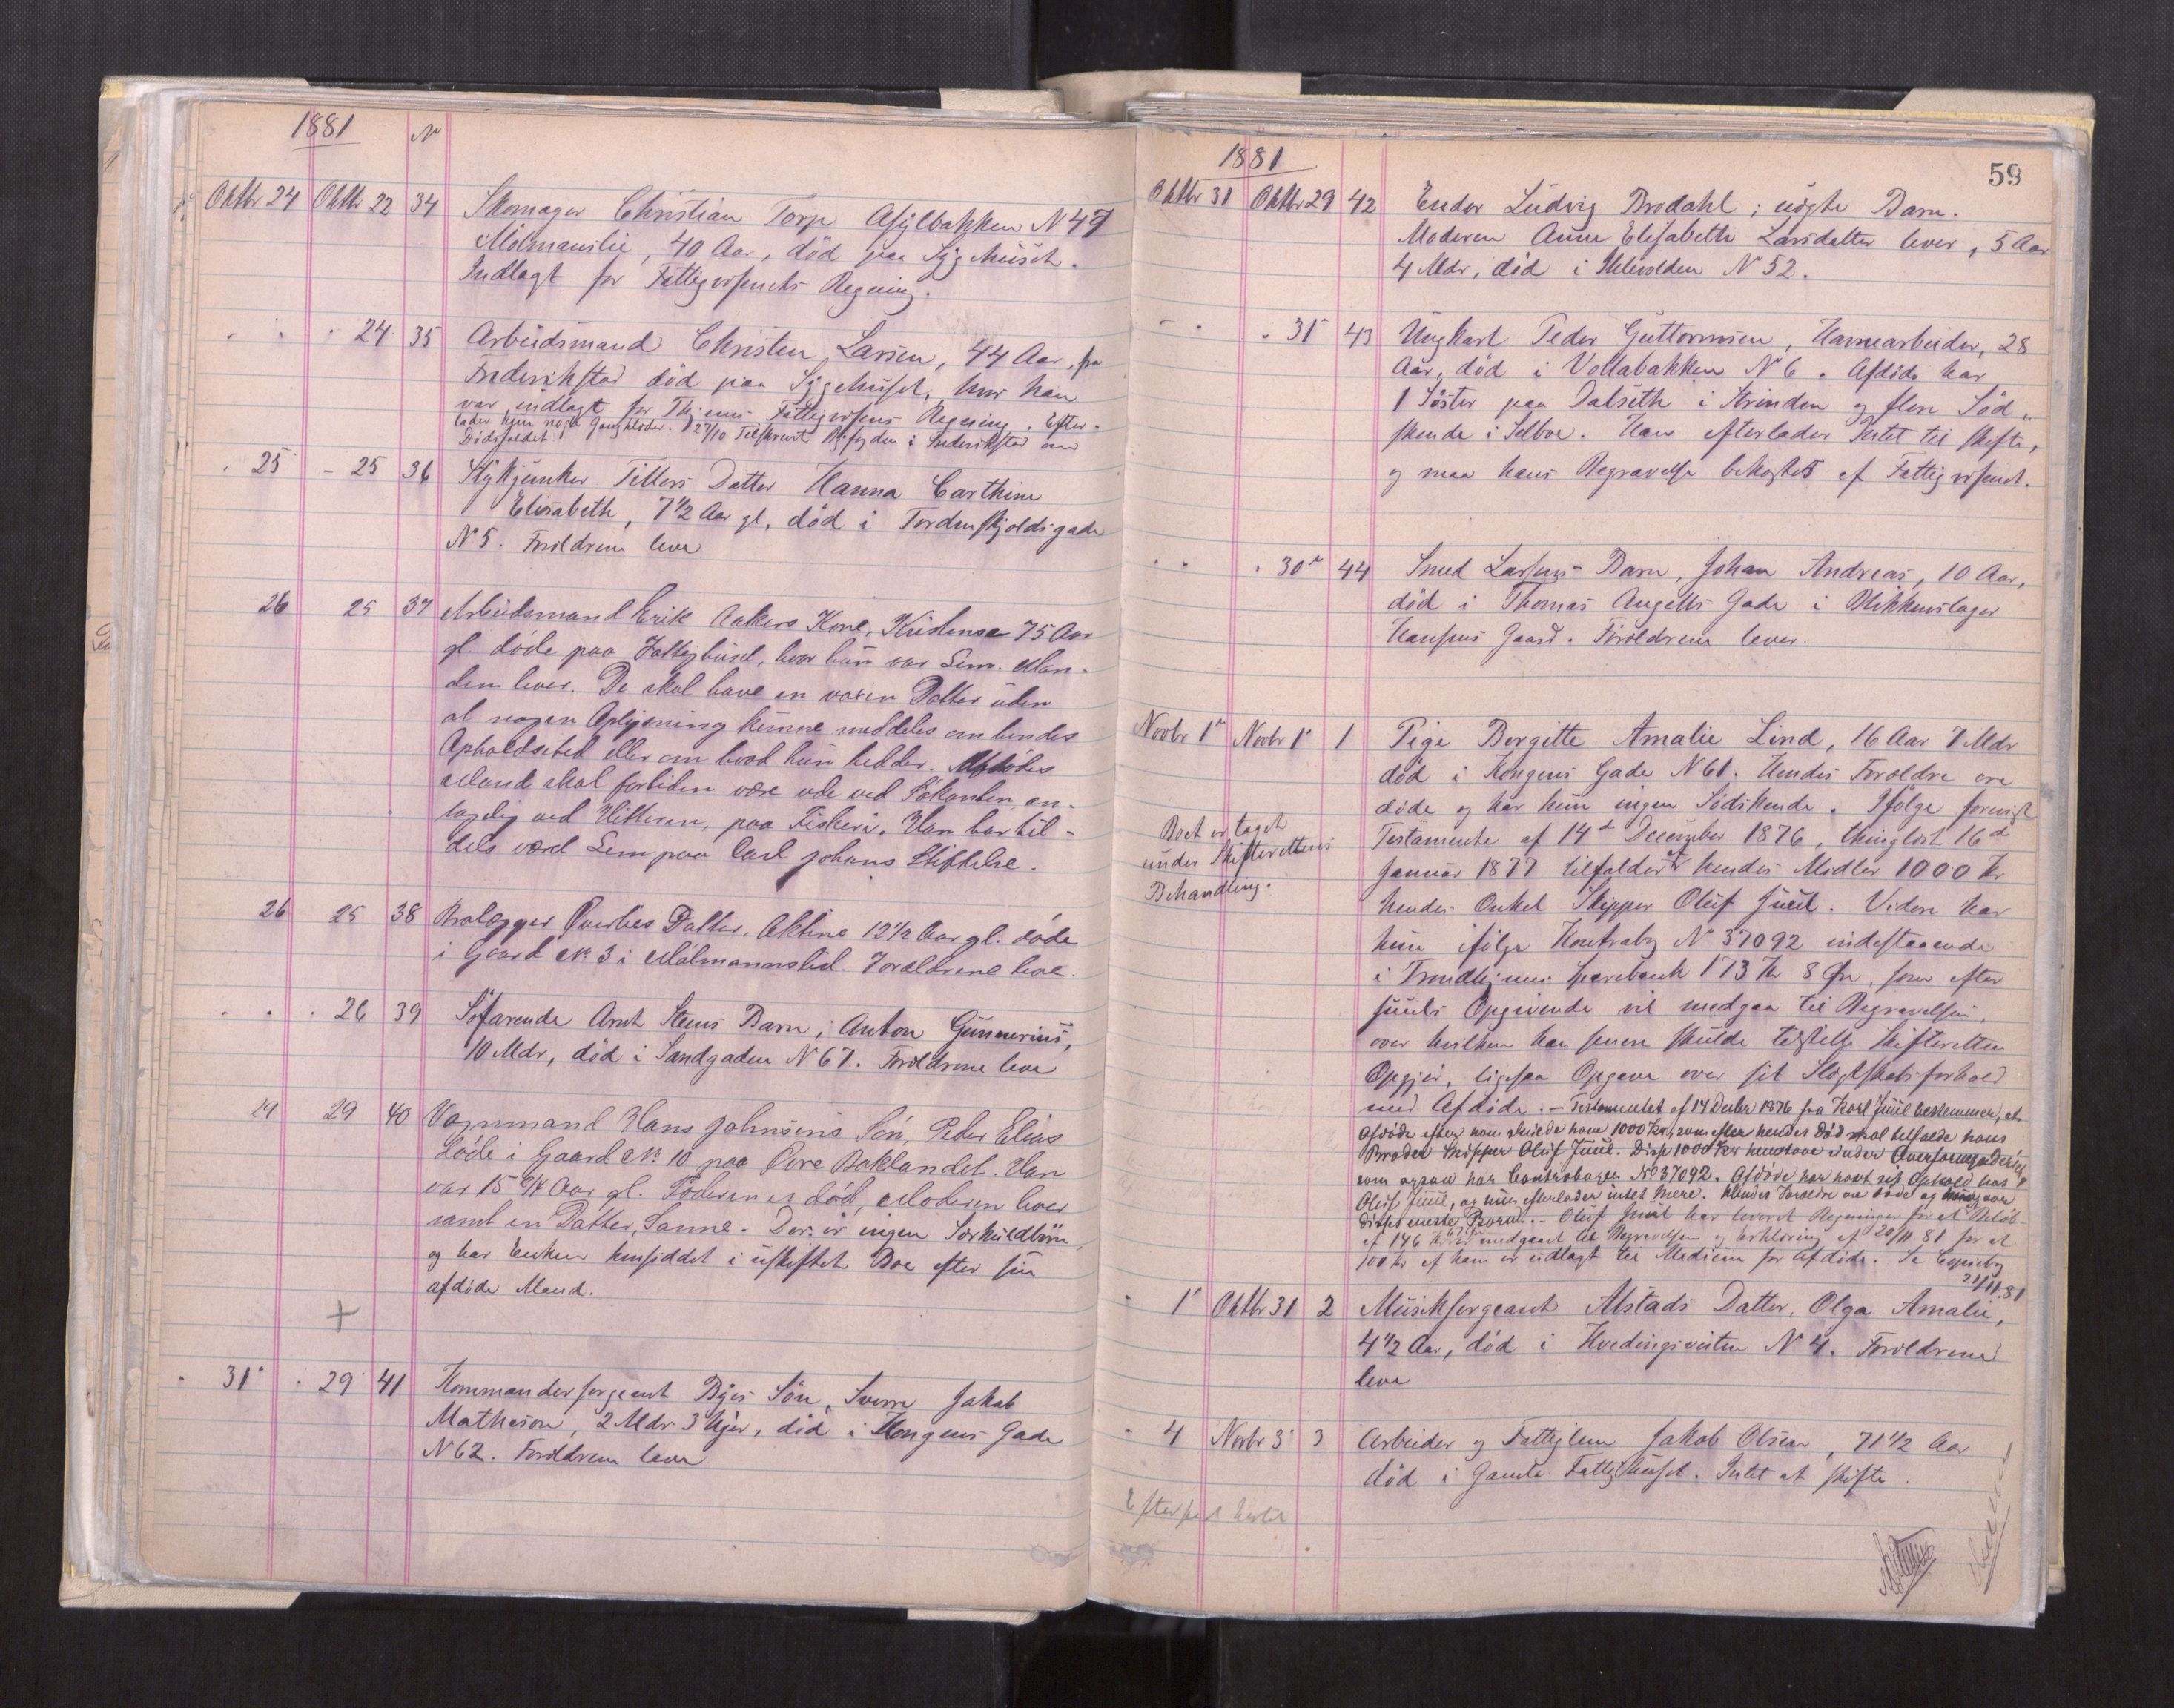 1881
No
Oktbr 24 Oktbr 22 34 Skomager Christian Torp Asylbakken N 47
Mølmanslie, 40 Aar, død paa Sygehuset.
Indlagt for Fattigvæsenets Regning.
" " " 24 35 Arbeidsmand Christen Larsen, 44 Aar, fra
Frederikstad død paa Sygehuset, hvor han
var indlagt for Thjems Fattigvæsens Regning. Efter-
lader kun nogle Gangklæder. 27/10 Tilskrevet i Frederikstad om
Dødsfaldet
" 25 " 25 36 Stykjunker Tillers Datter Hanna Carthine
Elisabeth, 7 1/2 Aar gl, død i Tordenskjoldsgade
N 5. Forældrene leve
26 25 37 Arbeidsmand Erik Aakers Kone, Kristense 75 Aar
gl. døde paa Fattighuset, hvor hun var Lem. Man-
den lever. De skal have en voxen Datter uden
at nogen Oplysning kunne meddeles om hendes
Opholdssted eller om hvad hun hedder. Afdødes
Mand skal fortiden være ude ved Søkanten, an-
tagelig ved Hitteren, paa Fiskeri. Han har til-
dels været Lem paa Carl Johans Stiftelse.
26 25 38 Brolægger Øverbes Datter, Oktine 12 1/2 Aar gl. døde
i Gaard No 3 i Mølmannslid. Forældrene leve.
" " " 26 39 Søfarende Arnt Steens Barn, Anton Gunnerius,
10 Mdr, død i Sandgaden N 67. Forældrene leve
29 29 40 Vognmand Hans Johnsens Søn, Peder Elias
døde i Gaard No 10 paa Øvre Baklandet. Han
var 15 3/4 Aar gl. Faderen er død, Moderen lever
samt en Datter, Sanne. Der er ingen Særkuldbørn,
og har Enken hensiddet i uskiftet Bo efter sin
afdøde Mand.
+
" 31 " 29 41 Kommandersergeant Byes Søn, Sverre Jakob
Matheson, 2 Mdr 3 Uger, død i Kongens Gade
N 62. Forældrene leve
59
1881
Oktbr 31 Oktbr 29 42 Endor Ludvig Brodahl, uægte Barn.
Moderen Anne Elisabeth Larsdatter lever, 5 Aar
4 Mdr, død i Ihlevolden N 52.
" " " 31 43 Ungkarl Peder Guttormsen, Havnearbeider, 28
Aar, død i Vollabakken N 6. Afdøde har
1 Søster paa Dalseth i Strinden og flere Sød-
skende i Selbo. Han efterlader Intet til Skifte,
og maa hans Begravelse bekostes af Fattigvæsenet.
" " " 30 44 Smed Larsens Barn, Johan Andreas, 10 Aar,
død i Thomas Angells Gade i Blikkenslager
Hansens Gaard. Forældrene lever.
Novbr 1 Novbr 1 1 Pige Bergitte Amalie Lind, 16 Aar 7 Mdr
død i Kongens Gade N 61. Hendes Forældre ere
døde og har hun ingen Sødskende. Ifølge forevist
Testamente af 14d December 1876, thinglæst 16d
Januar 1877 tilfalder af hendes Midler 1000 Kr
hendes Onkel Skipper Oluf Juul. Videre har
hun ifølge Kontrabog N 37092 indestaaende
i Trondhjems Sparebank 173 Kr 8 Øre, som efter
Juuls Opgivende vil medgaa til Begravelsen,
over hvilken han senere skulde tilstille Skifteretten
Opgjør, ligesaa Opgave over sit Slægtskabsforhold
med Afdøde. – Testamentet af 14 Decbr 1876 fra Karl Juul bestemmer, at
Afdøde efter ham skulde have 1000 Kr, som efter hendes Død skal tilfalde hans
Broder Skipper Oluf Juul. Disse 1000 Kr henstaar under Overformynderiet
som ogsaa har Contrabogen No 37092. Afdøde har havt sit Ophold hos
Oluf Juul, og hun efterlader intet mere. Hendes Forældre ere døde og hun var
disses eneste Barn. – Oluf Juul har leveret Regninger for et Beløb
af 146 Kr medgaaet til Begravelsen og Erklæring af 20/11 81 for at
100 Kr af ham er udlagt til Medicin for Afdøde. Se Copiebog
21/11.81
Boet er taget
under Skifterettens
Behandling.
" 1 Oktbr 31 2 Musiksergeant Alstads Datter, Olga Amalie,
4 1/2 Aar, død i Hvedingsveiten N 4. Forældrene
leve
" 4 Novbr 3 3 Arbeider og Fattiglem Jakob Olsen, 71 1/2 Aar
død i Gamle Fattighuset. Intet at skifte.